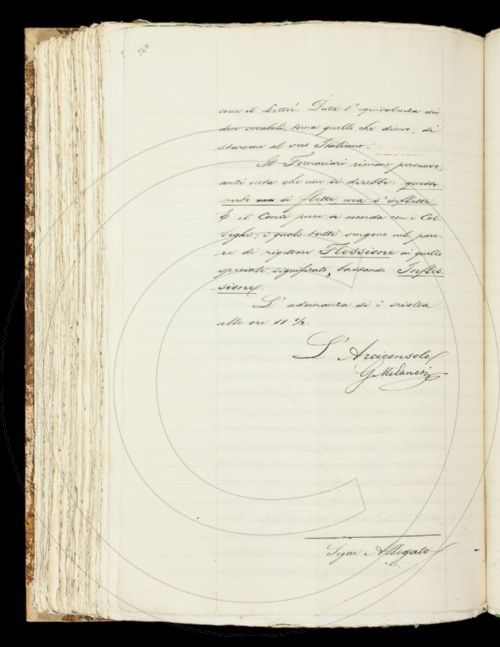 come si direbbe. Data l'equivalenza dei
due vocaboli, torna quello che dicevo, di
stare al uso Italiano.
Il Fornaciari rimane persuaso,
anzi nota che non si direbbe questo
verbo non si flette ma s'inflette.
E il Conti pure si accorda con i Col-
leghi, i quali tutti vengono nel pare-
re di rigettare Flessione in quello
speciale significato, bastando Infles-
sione.
L'adunanza si è sciolta
alle ore 11 1/2.
L'Arciconsolo
G Milanesi
Segue Allegato